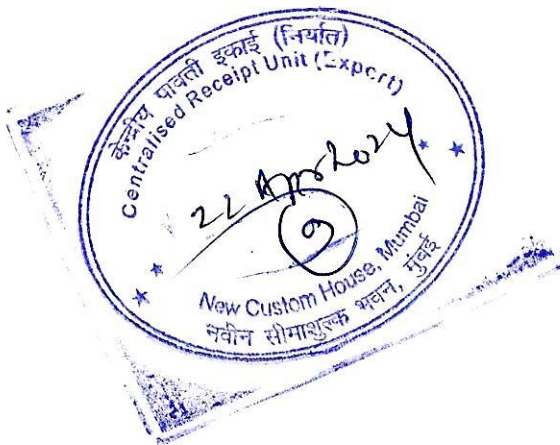 केन्द्रीय पावती इकाई (निर्यात)
Centralised Receipt Unit (Export)
22 Apr 2024
New Custom House, Mumbai
नवीन सीमाशुल्क भवन, मुंबई